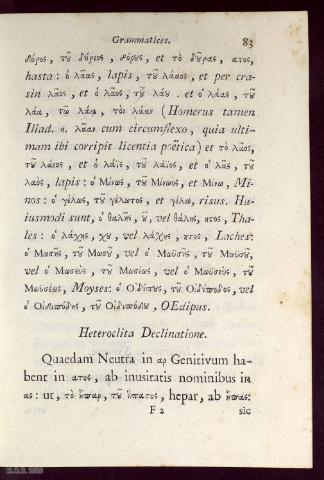 Grammatices. 83
δόρος, τῦ δόριος, δόρυς, et τὸ δῦρας, ατος,
hasta: ὁ λᾶας, lapis, τῦ λάαος, et per cra-
sin λᾶος, et ὁ λᾶος, τῦ λάυ. et ὁ λάας, τῦ
λάα, τῷ λάᾳ, τὸν λάαν (Homerus tamen
Iliad. κ. λᾶαν cum circumflexo, quia ulti-
mam ibi corripit licentia poëtica) et τὸ λᾶος,
τῦ λάεος, et ὁ λάϊς, τῦ λάϊος, et ὁ λᾶς, τῦ
λαὸς, lapis: ὁ Μίνως, τῦ Μίνωος, et Μίνω, Mi-
nos: ὁ γέλως, τῦ γέλωτος, et γέλω, risus. Hu-
iusmodi sunt, ὁ θαλῆς, ῦ, vel θάλης, ητος, Tha-
les: ὁ λάχης, χυ, vel λάχης, ητος, Laches:
ὁ Μωσῆς, τῦ Μωσῦ, vel ὁ Μωϋσῆς, τῦ Μωϋσῦ,
vel ὁ Μωσεὺς, τῦ Μωσέως, vel ὁ Μωϋσεὺς, τῦ
Μωϋσέως, Moyses: ὁ Οἰδίπυς, τῦ Οἰδίποδος, vel
ὁ Οἰδιπόδης, τῦ Οἰδιπόδυ, OEdipus.
Heteroclita Declinatione.
Quaedam Neutra in αρ Genitivum ha-
bent in ατος, ab inusitatis nominibus in
ας: ut, τὸ ἧπαρ, τῦ ἥπατος, hepar, ab ἧπας:
F 2 sic